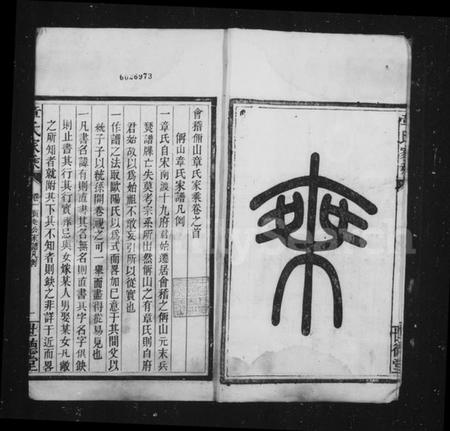 6026973
乘
會稽偁山章氏家乘卷之首
偁山章氏家譜凡例
一章氏自宋南渡十九府君始遷居會稽之偁山元末兵
燹譜牒亡失莫考宗系所出然偁山之有章氏則自府
君始故以為始祖不敢妄引所以從實也
一作譜之法取歐陽氏以為式而畧加己意于其間父以
統子子以統孫開卷視之可一舉而盡得從易見也
一凡書名諱有則直書其名無名則直書其字名字俱缺
則止書其行其行實某已與女嫁某人男娶某女凡
之所知者就附其下其不知者則缺之非詳于近而畧
章氏家乘
卷一
世德堂